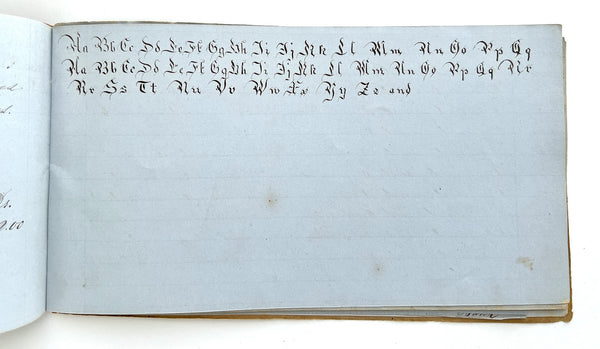 Aa Bb Cc Dd Ee Ff Gg Hh Ii Jj Kk Ll Mm Nn Oo Pp Qq
Aa Bb Cc Dd Ee Ff Gg Hh Ii Jj Kk Ll Mm Nn Oo Pp Qq Rr
Rr Ss Tt Uu Vv Ww Xx Yy Zz and
.00